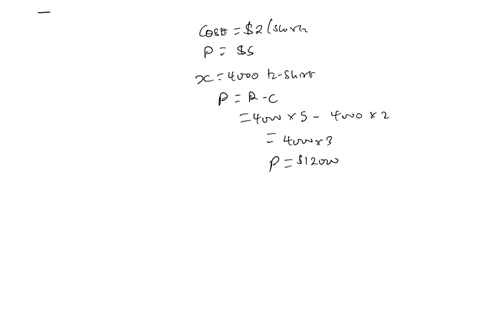 Cost = $2/short
P = $5
x = 4000 t-short
P = R - C
= 4000 x 5 - 4000 x 2
= 4000 x 3
P = $12000